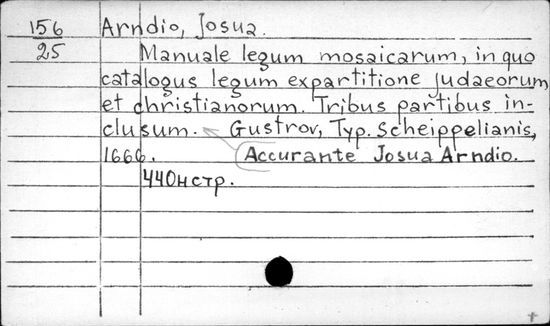 156
25
Arndio, Josua.
Manuale legum mosaicarum, in quo
catalogus legum expartitione judaeorum
et christianorum. Tribus partibus in-
clusum. Gustrov, Typ. Scheippelianis,
1666. Accurante Josua Arndio.
440нстр.